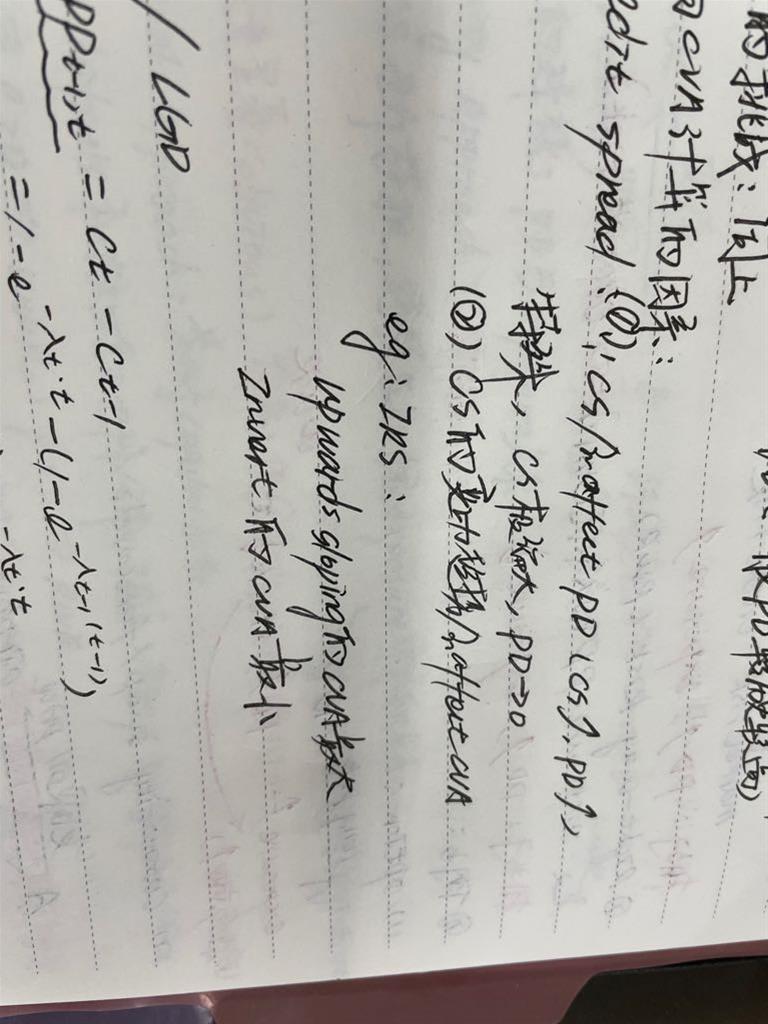 的挑战：
CVA计算的因素：
spread：(①), CS affect PD (CS↑, PD↑)
特殊, CS极端大, PD→0
(②) CS的 affect CVA
eg: IRS：
upwards sloping的CVA最大
Invert的CVA最小
/ LGD
PDt-1,t = Ct - Ct-1
= 1 - e^-λt·t - (1 - e^-λt-1(t-1))
-λt·t